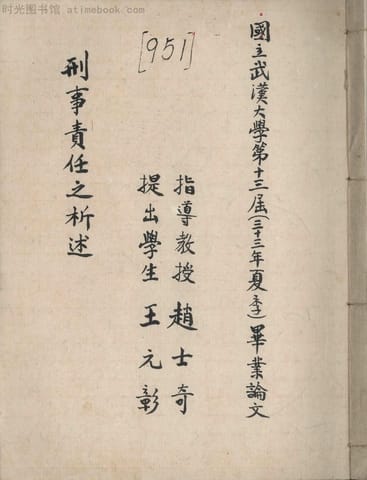 时光图书馆 · atimebook.com
[951]
國立武漢大學第十三屆(三十三年夏季)畢業論文
指導教授 趙士奇
提出學生 王元彰
刑事責任之析述